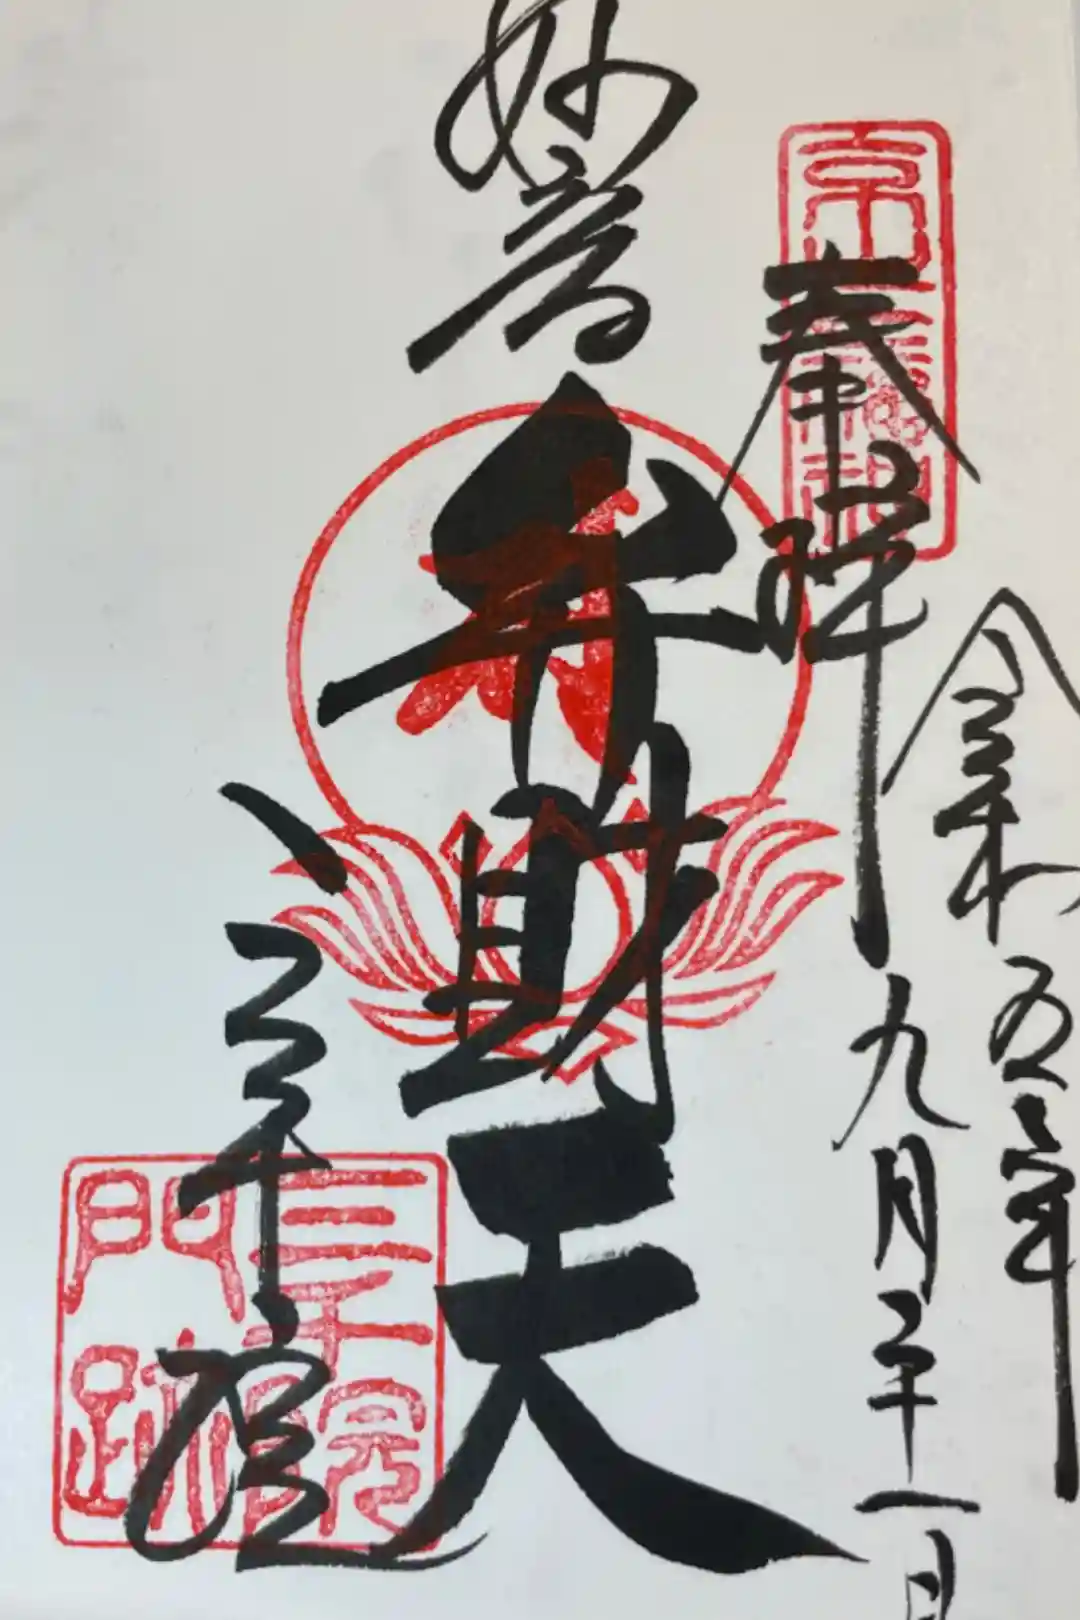 奉拝
令和五年
九月二十一日
妙音
弁財天
三千院
三千院
門跡